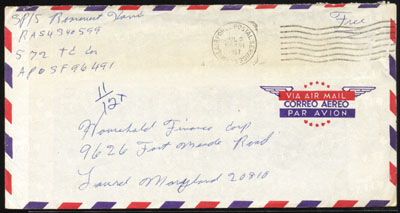 SP/5
RA54340599
572 TC Co
APO SF 96491
Free
11/12
VIA AIR MAIL
CORREO AEREO
PAR AVION
Household Finance Corp
9626 Fort Meade Road
Laurel Maryland 20810